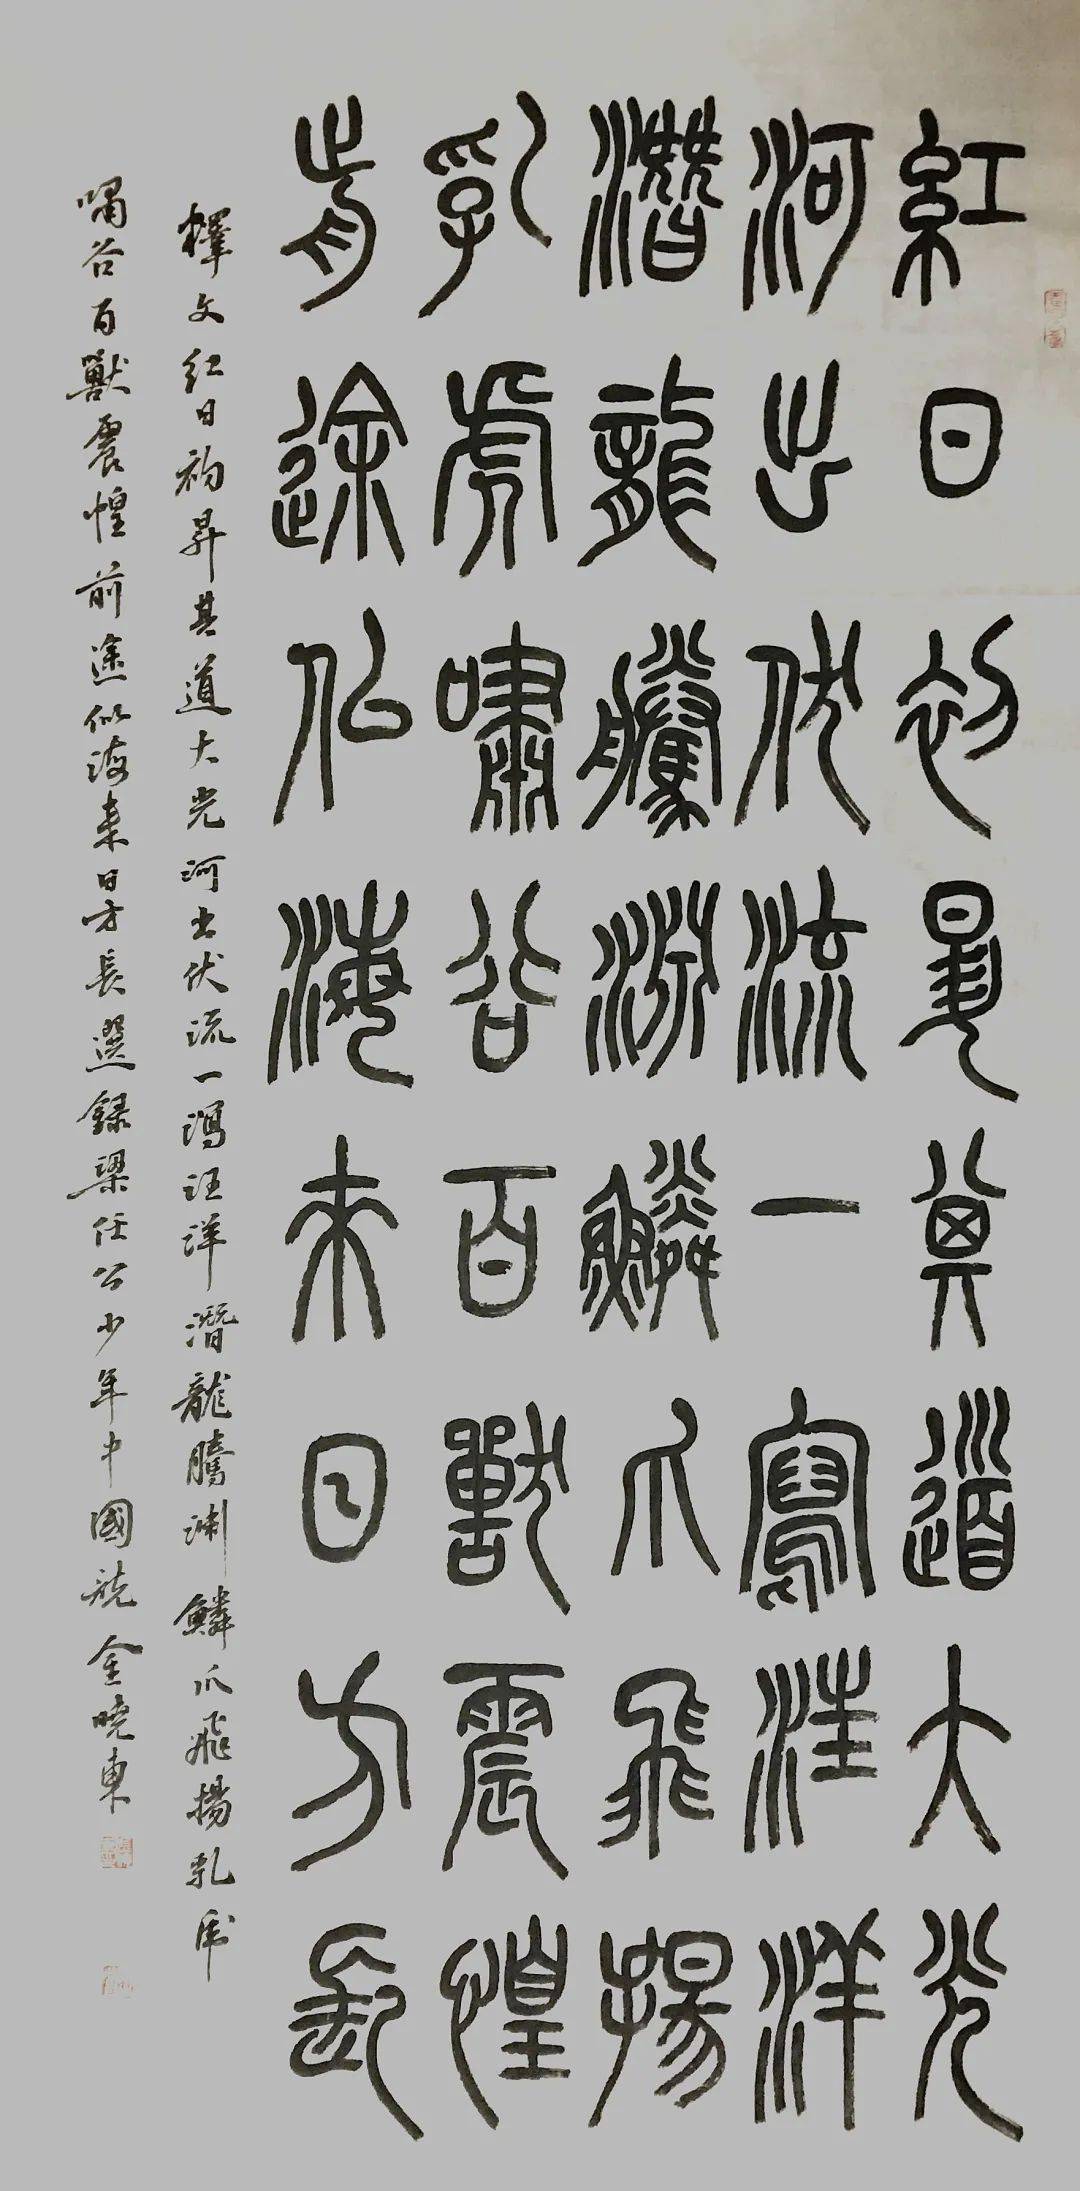 紅日初昇其道大光
河出伏流一瀉汪洋
潛龍騰淵鱗爪飛揚
乳虎嘯谷百獸震惶
前途似海來日方長
釋文紅日初昇其道大光河出伏流一瀉汪洋潛龍騰淵鱗爪飛揚乳虎
嘯谷百獸震惶前途似海來日方長選錄梁任公少年中國說金曉東